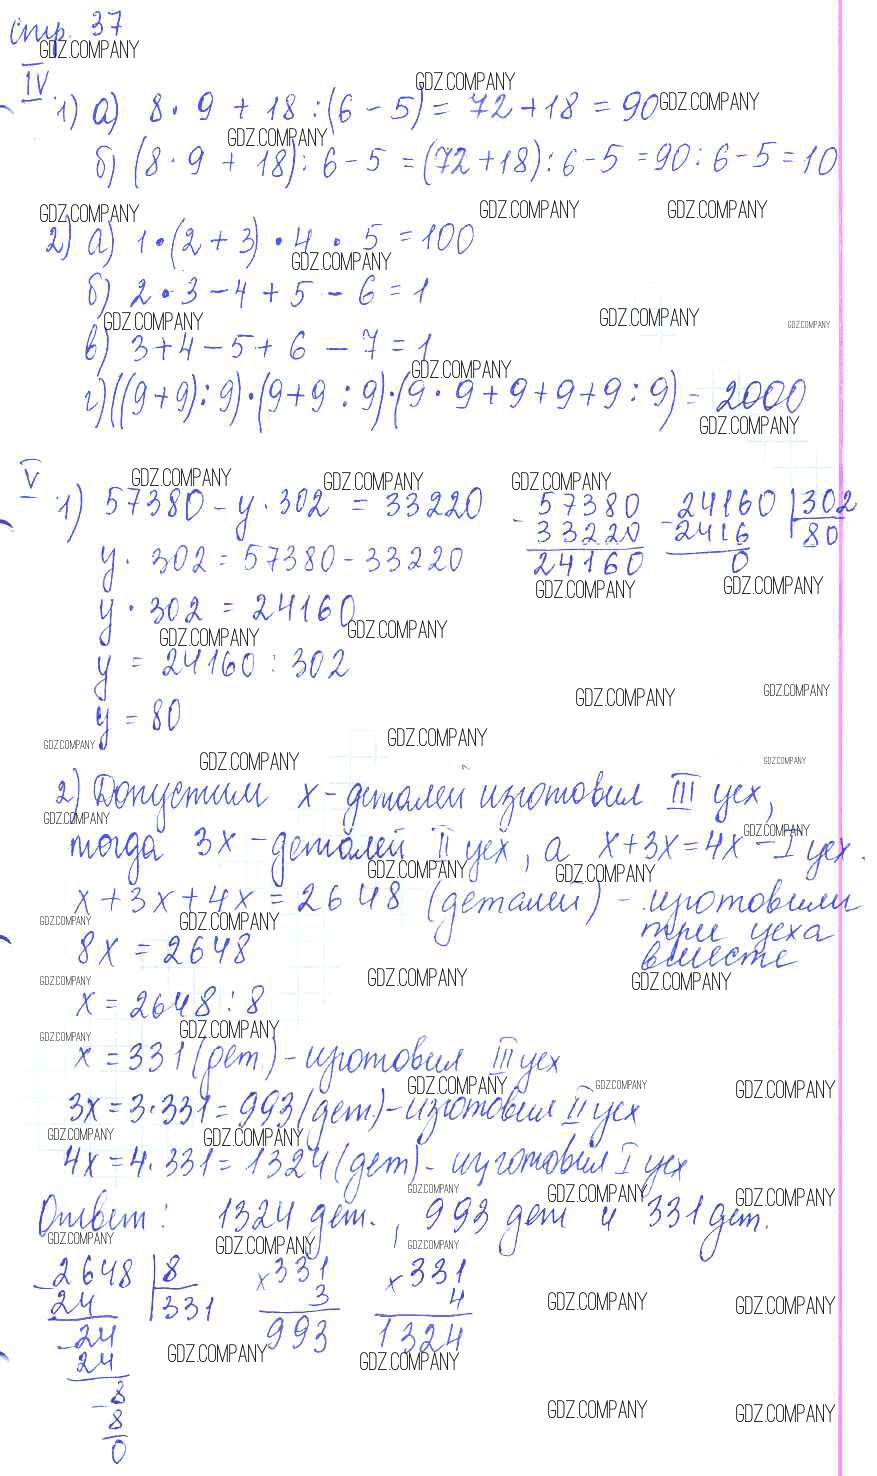 стр. 37
GDZ.COMPANY
IV.
GDZ.COMPANY
1) а) 8 · 9 + 18 : (6 - 5) = 72 + 18 = 90
GDZ.COMPANY
GDZ.COMPANY
б) (8 · 9 + 18) : 6 - 5 = (72 + 18) : 6 - 5 = 90 : 6 - 5 = 10
GDZ.COMPANY GDZ.COMPANY GDZ.COMPANY
2) а) 1 · (2 + 3) · 4 · 5 = 100
GDZ.COMPANY
б) 2 · 3 - 4 + 5 - 6 = 1
GDZ.COMPANY GDZ.COMPANY GDZ.COMPANY
в) 3 + 4 - 5 + 6 - 7 = 1
GDZ.COMPANY
г) ((9 + 9) : 9) · (9 + 9 : 9) · (9 · 9 + 9 + 9 + 9 : 9) = 2000
GDZ.COMPANY
V
GDZ.COMPANY GDZ.COMPANY GDZ.COMPANY
1) 57380 - y · 302 = 33220
y · 302 = 57380 - 33220
y · 302 = 24160
y = 24160 : 302
y = 80
- 57380
33220
24160
- 24160 | 302
2416 80
0
GDZ.COMPANY GDZ.COMPANY
GDZ.COMPANY GDZ.COMPANY
GDZ.COMPANY GDZ.COMPANY
GDZ.COMPANY GDZ.COMPANY
GDZ.COMPANY GDZ.COMPANY
2) Допустим x - деталей изготовил III цех,
GDZ.COMPANY GDZ.COMPANY
тогда 3x - деталей II цех, а x + 3x = 4x - I цех.
GDZ.COMPANY GDZ.COMPANY
x + 3x + 4x = 2648 (деталей) - изготовили
три цеха
вместе
GDZ.COMPANY GDZ.COMPANY
8x = 2648
GDZ.COMPANY GDZ.COMPANY GDZ.COMPANY
x = 2648 : 8
GDZ.COMPANY GDZ.COMPANY
x = 331 (дет.) - изготовил III цех
GDZ.COMPANY GDZ.COMPANY GDZ.COMPANY
3x = 3 · 331 = 993 (дет.) - изготовил II цех
GDZ.COMPANY GDZ.COMPANY
4x = 4 · 331 = 1324 (дет) - изготовил I цех
GDZ.COMPANY GDZ.COMPANY GDZ.COMPANY
Ответ: 1324 дет., 993 дет и 331 дет.
GDZ.COMPANY GDZ.COMPANY GDZ.COMPANY
- 2648 | 8
24 331
- 24
24
- 8
8
0
x 331
3
993
x 331
4
1324
GDZ.COMPANY GDZ.COMPANY
GDZ.COMPANY GDZ.COMPANY
GDZ.COMPANY GDZ.COMPANY